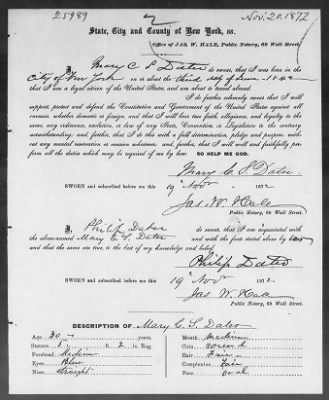 25989
2
Nov. 20. 1872
State, City and County of New York, ss.
Office of JAS. W. HALE, Public Notary, 60 Wall Street.
I, Mary C S Dater do swear, that I was born in the
City of New York on or about the third day of June 1842
that I am a legal citizen of the United States, and am about to travel abroad.
I do further solemnly swear that I will
support, protect and defend the Constitution and Government of the United States against all
enemies, whether domestic or foreign, and that I will bear true faith, allegiance, and loyalty to the
same, any ordinance, resolution, or law of any State, Convention, or Legislature to the contrary
notwithstanding; and further, that I do this with a full determination, pledge and purpose, with-
out any mental reservation or evasion whatever; and, further, that I will well and faithfully perform
all the duties which may be required of me by law. SO HELP ME GOD.
Mary C. S. Dater
SWORN and subscribed before me this 19th Nov 1872
Jas. W. Hale
Public Notary, 60 Wall Street.
I, Philip Dater do swear, that I am acquainted with
the above-named Mary C. S. Dater and with the facts stated above by her
and that the same are true, to the best of my knowledge and belief.
Philip Dater
SWORN and subscribed before me this 19th Nov 1872
Jas W. Hale
Public Notary, 60 Wall Street.
DESCRIPTION OF Mary C. S. Dater
Age, 30 years.
Mouth, medium
Stature, 2 in. Eng.
Chin,
Forehead, Medium
Hair,
Eyes, Blue
Complexion, Fair
Nose, Straight
Face, Oval